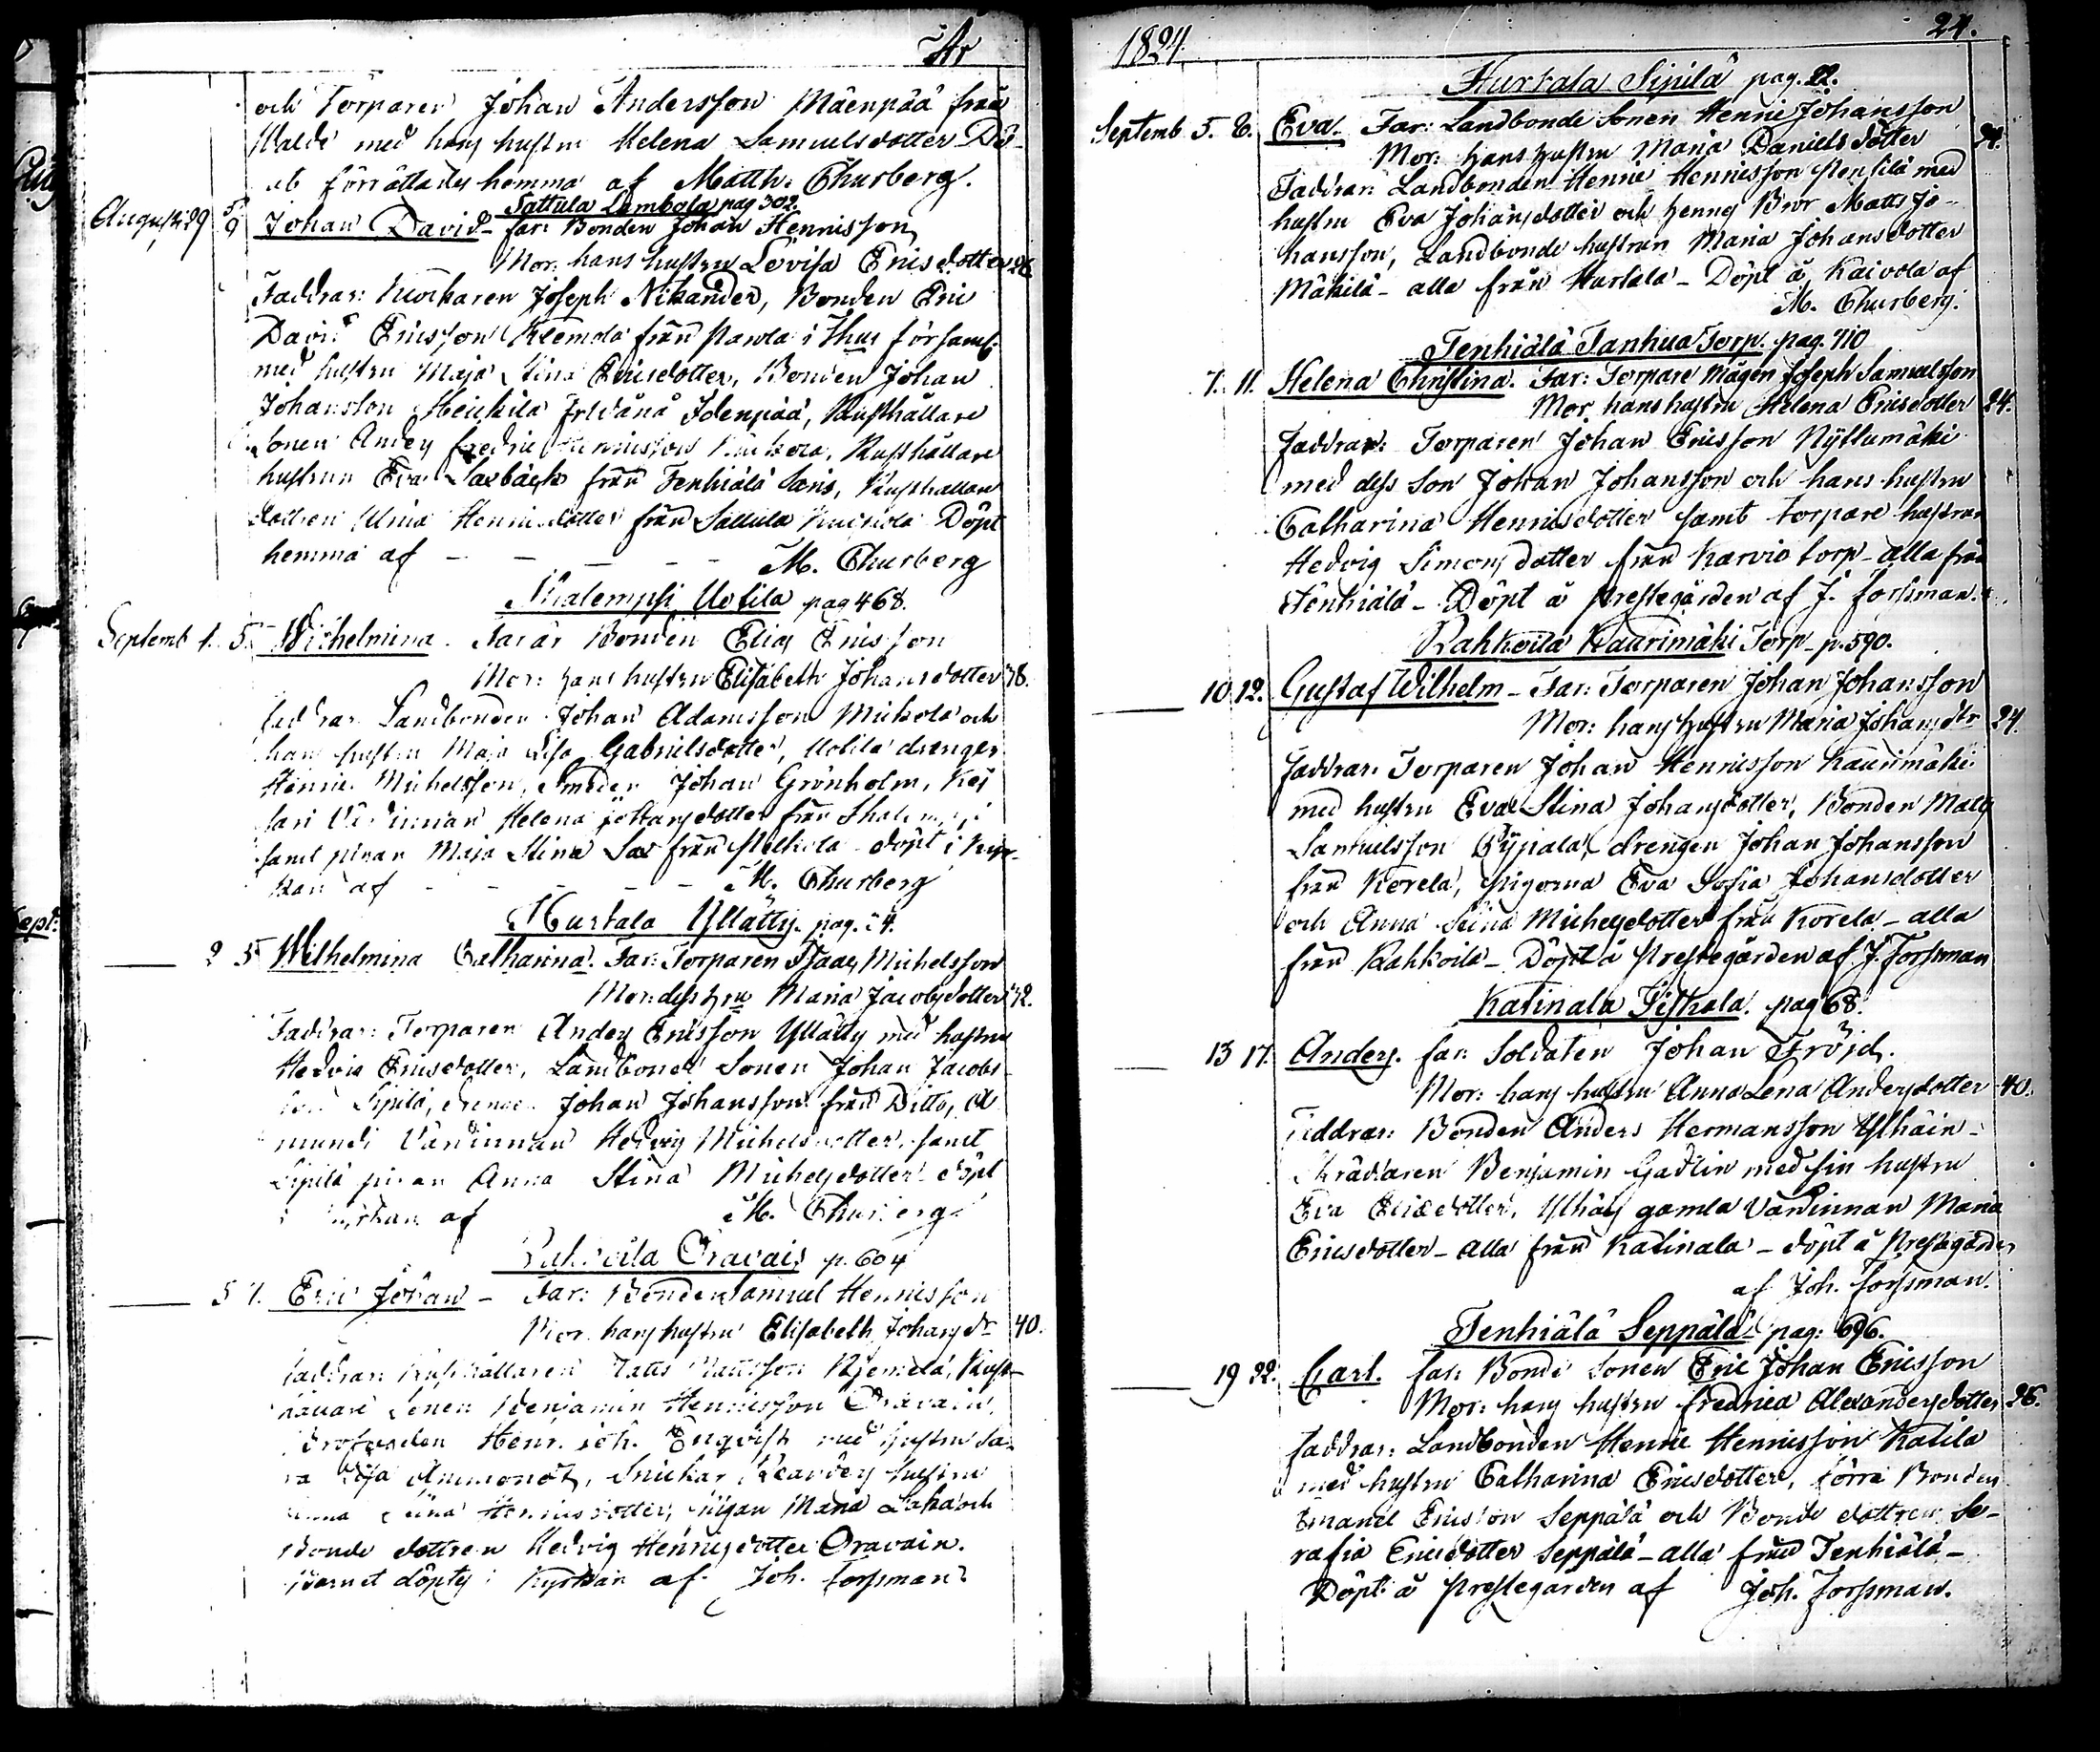 År
och Torparen Johan Andersson Mäenpää från
Walde med hans hustru Helena Samuelsdotter Dö-
förrättades hemma af Matth. Thurberg.
Sattula Lambola pag 302.
August 29 5/9 Johan David - far: Bonden Johan Hennisson
Mor: hans hustru Lovisa Ericsdotter 26
Faddrar: Klockaren Joseph Nikander, Bonden Eric
David Ericsson Klemola från Parola i Thus församl.
med hustru Maja Stina Ericsdotter, Bonden Johan
Johansson Heickilä Idenpää, Rusthållare
Sonen Anders Fredric Hennisson Rusthållare
hustrun Eva Saxbäck från Tenhiälä Säris, Rusthållare
dottren Ulrica Hennicsdotter från Sattula Döpt
hemma af - - - - - M. Thurberg
Uotila pag 468.
Septemb 1. 5. Wilhelmina. Far är Bonden Elias Ericsson
Mor: hans hustru Elisabeth Johansdotter 38.
Faddrar Landbonden Johan Adamsson Mickola och
hans hustru Maja Lisa Gabrielsdotter, Uotila drengen
Henric Michelsson, Smeden Johan Grönholm,
Värdinnan Helena Johansdotter från
samt pigan Maja Stina Sax från döpt i Kyr-
kan af - - - - - M. Thurberg
Hurtala Yllätty. pag. 24.
2 5 Wilhelmina Catharina. Far: Torparen Isaac Michelsson
Mor: dess hru Maria Jacobsdotter 32.
Faddrar: Torparen Anders Ericsson Yllätty med hustru
Hedvig Ericsdotter, Landbonde Sonen Johan Jacobs-
son Sipilä, drengen Johan Johansson från Ditto, A-
mundi Värdinnan Hedvig Michelsdotter, samt
Sipilä pigan Anna Stina Michelsdotter döpt
i Kyrkan af M. Thurberg
Rahkoila Oravais p. 604
5 7. Eric Johan - Far: Bonden Samuel Hennisson
Mor. hans hustru Elisabeth Johansdr 40.
Faddrar: Rusthållaren Matts Mattsson Njemelä, Rust-
hållare Sonen Benjamin Hennisson Oravain,
Henr. Joh. Engvist med hustru Sa-
ra Lisa Ammondt, Snickar hustru
Anna Stina Hennicsdotter, pigan Maria och
Bonde dottren Hedvig Hennicsdotter Oravain.
Barnet döptes i Kyrkan af Joh. Forssman
1824.
24.
Hurtala Sipilä pag. 22.
Septemb 5. 8. Eva. Far: Landbonde Sonen Henric Johansson
Mor: hans hustru Maria Danielsdotter 24.
Faddrar: Landbonden Henric Hennisson med
hustru Eva Johansdotter och hennes Bror Matts Jo-
hansson, Landbonde hustrun Maria Johansdotter
Mäkilä - alla från Hurtala - Döpt å Kaivola af
M. Thurberg.
Tenhiälä Tanhua Torp. pag. 710
7. 11. Helena Christina. Far: Torpare Mågen Joseph Samuelsson
Mor hans hustru Helena Ericsdotter 24.
Faddrar: Torparen Johan Ericsson Nyttumäki
med dess Son Johan Johansson och hans hustru
Catharina Hennicsdotter samt torpare hustrun
Hedvig Simonsdotter från Karvio torp - alla från
Tenhiälä - Döpt å Prestegården af J. Forssman.
Rahkoila Kaurimäki Torp - p. 590.
10 12. Gustaf Wilhelm - Far: Torparen Johan Johansson
Mor: hans hustru Maria Johansdtr 24.
Faddrar: Torparen Johan Hennisson Kaurimäki
med hustru Eva Stina Johansdotter, Bonden Matts
Samuelsson Pypälä, drengen Johan Johansson
från Korela, pigorna Eva Sofia Johansdotter
och Anna Stina Michelsdotter från Korela - alla
från Rahkoila - Döpt å Prestegården af J. Forssman
Katinala Piskola. pag 68.
13 17. Anders. far: Soldaten Johan Fröjd.
Mor: hans hustru Anna Lena Andersdotter 40.
Faddrar: Bonden Anders Hermansson Ylhäin-
Skräddaren Benjamin Gadlin med sin hustru
Eva Ericsdotter, Ylhäis gamla Värdinnan Maria
Ericsdotter - alla från Katinala - döpt å Prestegården
af Joh. Forssman.
Tenhiälä Seppälä - pag: 696.
19 22. Carl. far: Bonde Sonen Eric Johan Ericsson
Mor: hans hustru Fredrica Alexandersdotter 26.
Faddrar: Landbonden Henric Hennisson Katila
med hustru Catharina Ericsdotter, förra Bonden
Emanuel Ericsson Seppälä och Bonde dottren Se-
rafia Ericsdotter Seppälä - alla från Tenhiälä -
Döpt å Prestegården af Joh. Forssman.